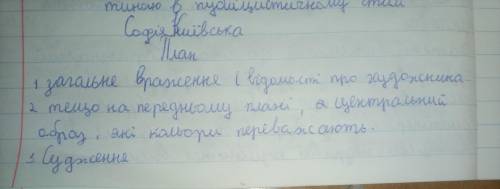 тиною в публіцистичному стилі
Софія Київська
План
1 загальне враження (відомості про художника
2 те що на передньому плані, а центральний
образ, які кольори переважають.
3 Судження